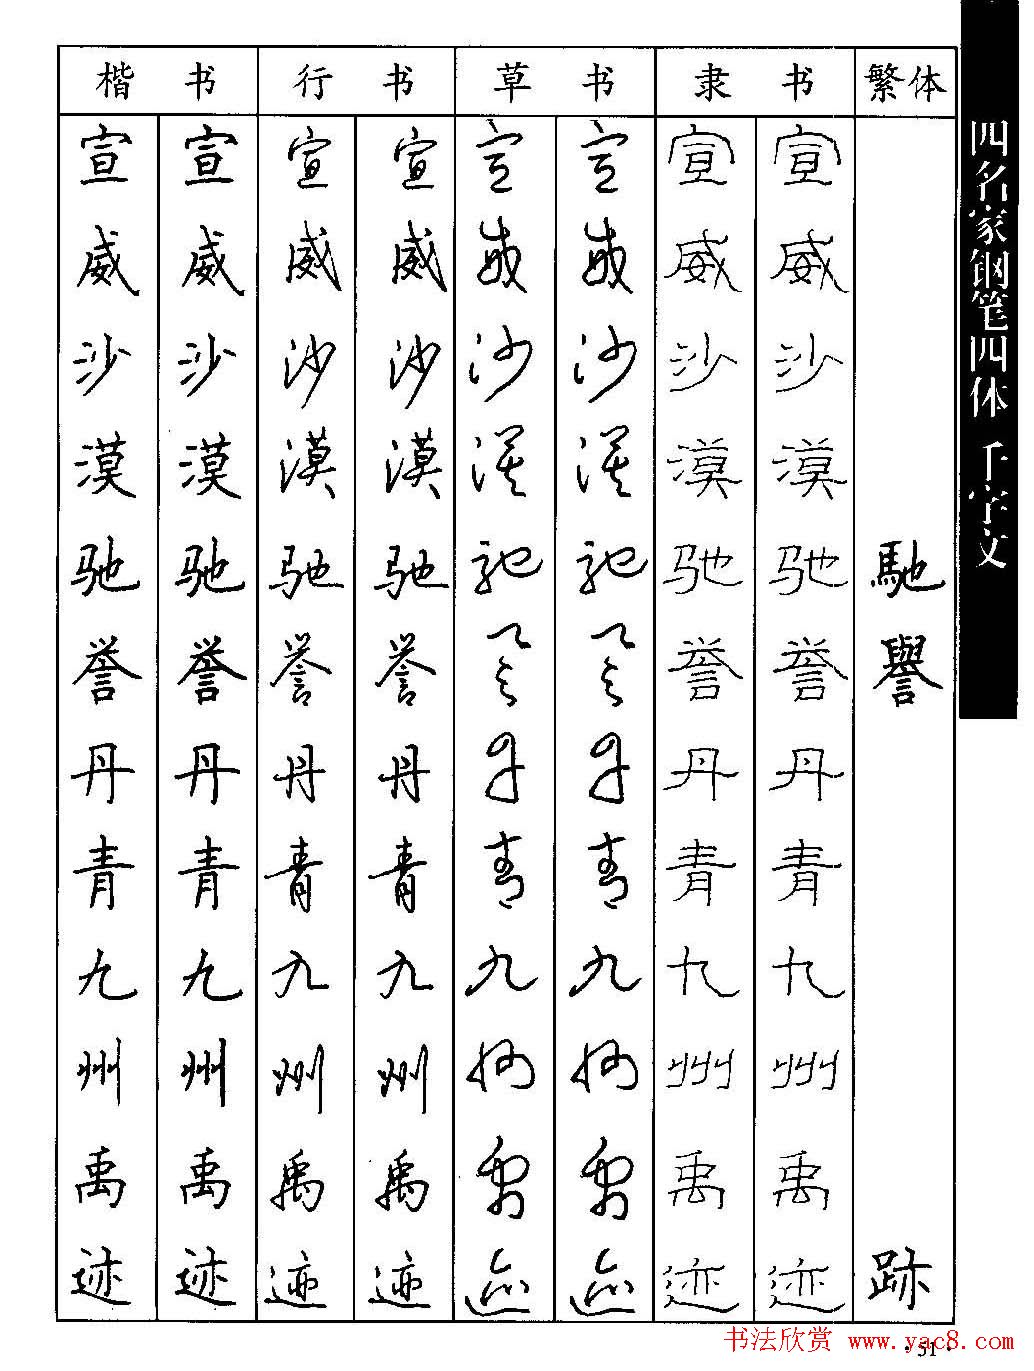 楷书 行书 草书 隶书 繁体
宣 宣 宣 宣 宣 宣 宣 宣
威 威 威 威 威 威 威 威
沙 沙 沙 沙 沙 沙 沙 沙
漠 漠 漠 漠 漠 漠 漠 漠
驰 驰 驰 驰 驰 驰 驰 驰 馳
誉 誉 誉 誉 誉 誉 誉 誉 譽
丹 丹 丹 丹 丹 丹 丹 丹
青 青 青 青 青 青 青 青
九 九 九 九 九 九 九 九
州 州 州 州 州 州 州 州
禹 禹 禹 禹 禹 禹 禹 禹
迹 迹 迹 迹 迹 迹 迹 迹 跡
四名家钢笔四体 千字文
书法欣赏 www.yac8.com
·51·